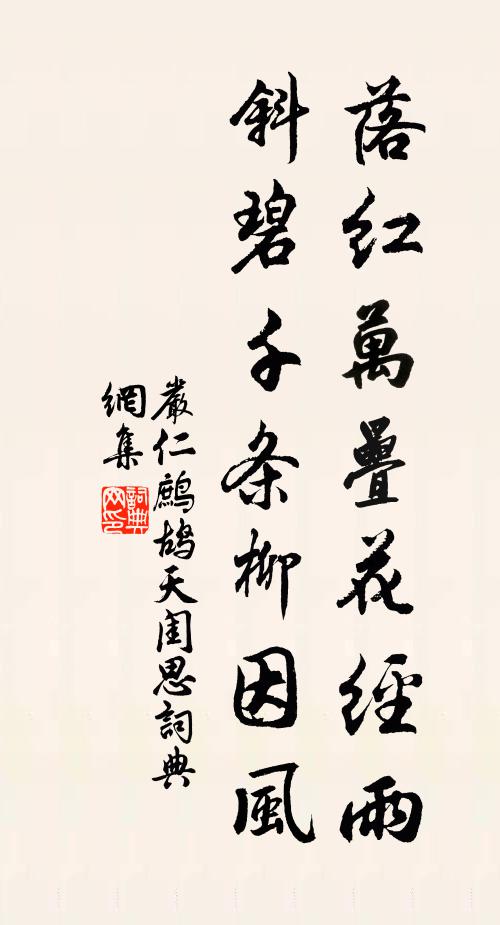 落红萬疊花經雨
斜碧千条柳因風
嚴仁鷓鴣天閨思詞典
網集
詞典
网印